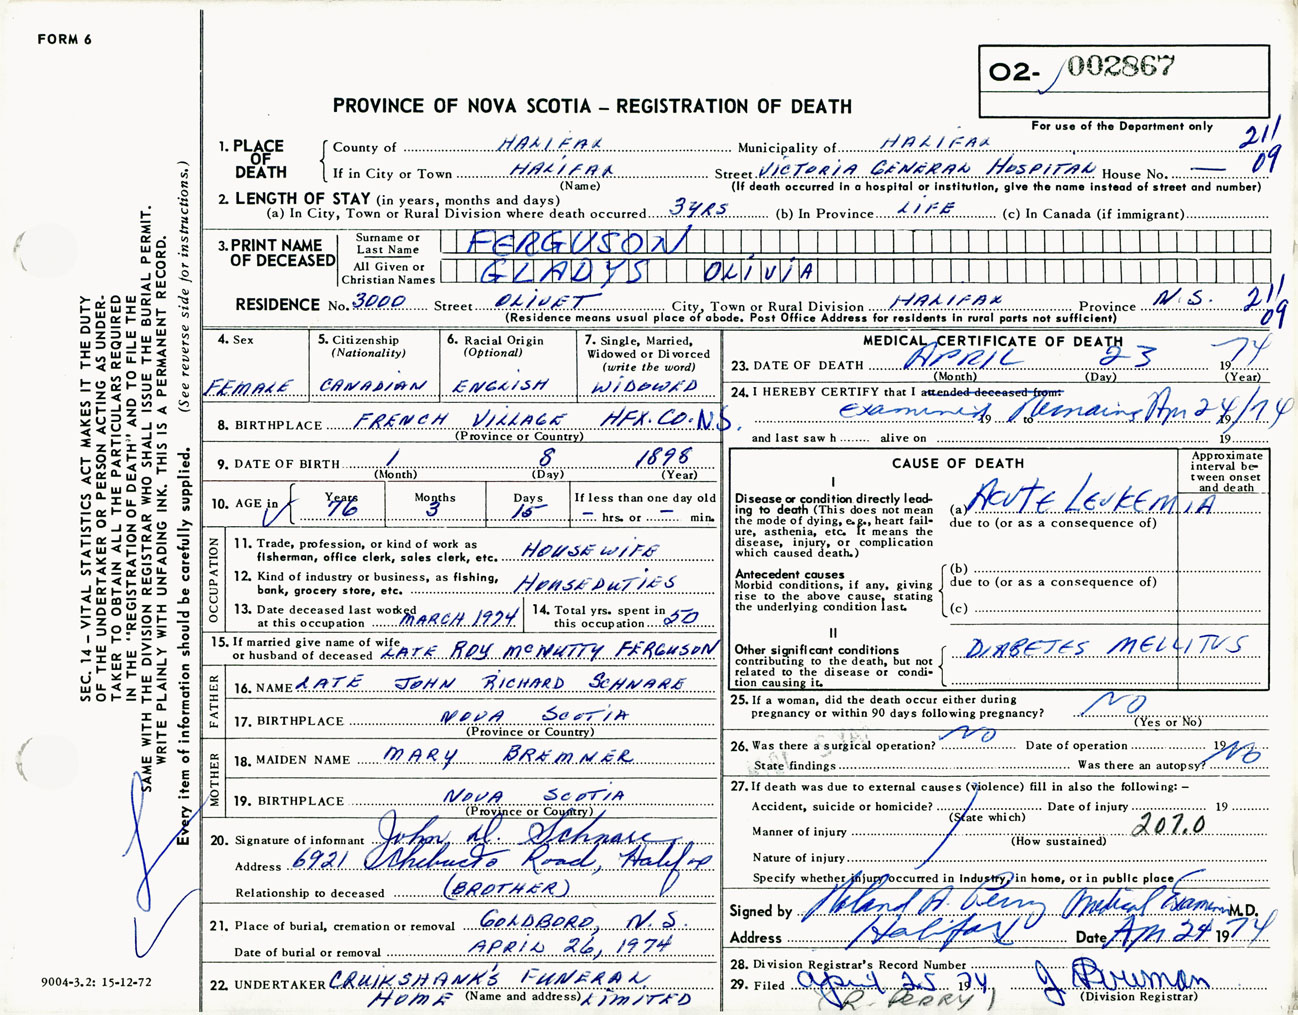 FORM 6
O2- 002867
PROVINCE OF NOVA SCOTIA – REGISTRATION OF DEATH
For use of the Department only
211
09
1. PLACE OF DEATH
County of HALIFAX Municipality of HALIFAX
If in City or Town HALIFAX Street VICTORIA GENERAL HOSPITAL House No. —
(Name) (If death occurred in a hospital or institution, give the name instead of street and number)
2. LENGTH OF STAY (in years, months and days)
(a) In City, Town or Rural Division where death occurred 3 YRS (b) In Province LIFE (c) In Canada (if immigrant)
3. PRINT NAME OF DECEASED
Surname or Last Name FERGUSON
All Given or Christian Names GLADYS OLIVIA
RESIDENCE No. 3000 Street OLIVET City, Town or Rural Division HALIFAX Province N.S. 211 09
(Residence means usual place of abode. Post Office Address for residents in rural parts not sufficient)
4. Sex
FEMALE
5. Citizenship (Nationality)
CANADIAN
6. Racial Origin (Optional)
ENGLISH
7. Single, Married, Widowed or Divorced (write the word)
WIDOWED
8. BIRTHPLACE FRENCH VILLAGE HFX. CO. N.S.
(Province or Country)
9. DATE OF BIRTH 1 8 1898
(Month) (Day) (Year)
10. AGE in Years 76 Months 3 Days 15 If less than one day old – hrs. or – min.
OCCUPATION
11. Trade, profession, or kind of work as fisherman, office clerk, sales clerk, etc. HOUSEWIFE
12. Kind of industry or business, as fishing, bank, grocery store, etc. HOUSEDUTIES
13. Date deceased last worked at this occupation MARCH 1974
14. Total yrs. spent in this occupation 50
15. If married give name of wife or husband of deceased LATE ROY MCNUTTY FERGUSON
FATHER
16. NAME LATE JOHN RICHARD SCHNARE
17. BIRTHPLACE NOVA SCOTIA
(Province or Country)
MOTHER
18. MAIDEN NAME MARY BREMNER
19. BIRTHPLACE NOVA SCOTIA
(Province or Country)
20. Signature of informant John D. Schnare
Address 6921 Chebucto Road, Halifax
Relationship to deceased (BROTHER)
21. Place of burial, cremation or removal GOLDBORO, N.S.
Date of burial or removal APRIL 26, 1974
22. UNDERTAKER CRUIKSHANK'S FUNERAL HOME LIMITED
(Name and address)
MEDICAL CERTIFICATE OF DEATH
23. DATE OF DEATH APRIL 23 1974
(Month) (Day) (Year)
24. I HEREBY CERTIFY that I attended deceased from:
Examined Remains Apr 24/74
19 to 19
and last saw h alive on 19
CAUSE OF DEATH
Approximate interval between onset and death
I
Disease or condition directly leading to death (This does not mean the mode of dying, e.g., heart failure, asthenia, etc. It means the disease, injury, or complication which caused death.)
(a) ACUTE LEUKEMIA
due to (or as a consequence of)
Antecedent causes
Morbid conditions, if any, giving rise to the above cause, stating the underlying condition last.
(b)
due to (or as a consequence of)
(c)
II
Other significant conditions
contributing to the death, but not related to the disease or condition causing it.
DIABETES MELLITUS
25. If a woman, did the death occur either during pregnancy or within 90 days following pregnancy? NO
(Yes or No)
26. Was there a surgical operation? NO Date of operation 19
State findings Was there an autopsy? NO
27. If death was due to external causes (violence) fill in also the following: –
Accident, suicide or homicide? Date of injury 19
(State which)
Manner of injury 207.0
(How sustained)
Nature of injury
Specify whether injury occurred in industry, in home, or in public place
Signed by Roland A. Perry Medical Examiner M.D.
Address Halifax Date Apr 24 1974
28. Division Registrar's Record Number
29. Filed April 25 1974
(R. PERRY)
(Division Registrar)
SEC. 14 – VITAL STATISTICS ACT MAKES IT THE DUTY
OF THE UNDERTAKER OR PERSON ACTING AS UNDER-
TAKER TO OBTAIN ALL THE PARTICULARS REQUIRED
IN THE "REGISTRATION OF DEATH" AND TO FILE THE
SAME WITH THE DIVISION REGISTRAR WHO SHALL ISSUE THE BURIAL PERMIT.
WRITE PLAINLY WITH UNFADING INK. THIS IS A PERMANENT RECORD.
Every item of information should be carefully supplied. (See reverse side for instructions.)
9004-3.2: 15-12-72